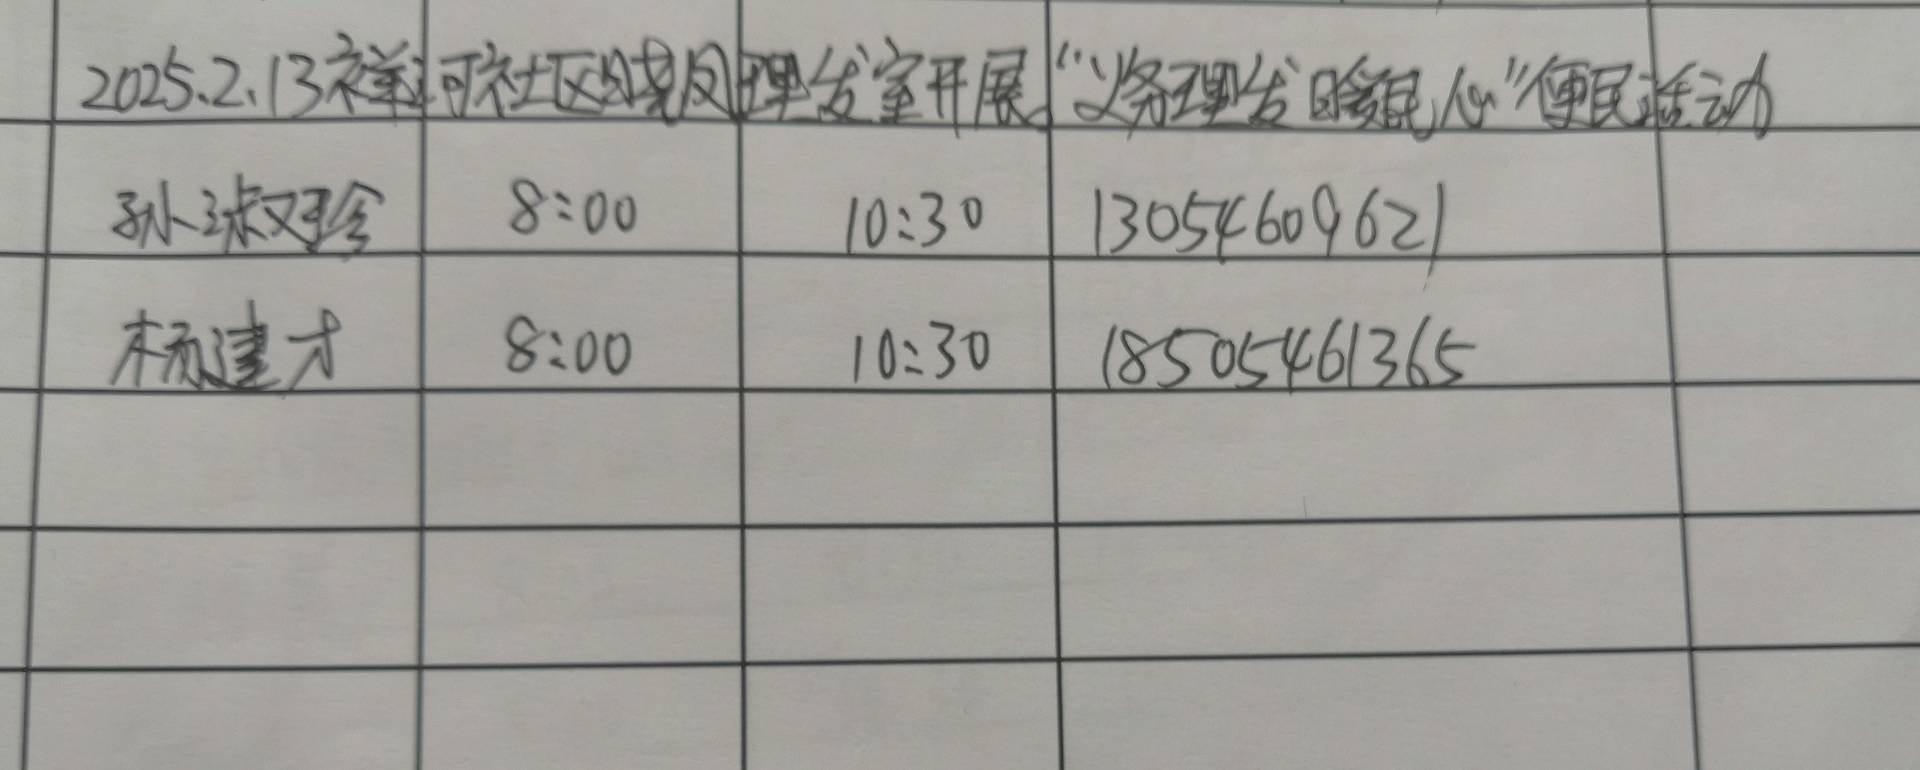 2025.2.13祥河社区区域风理发室开展"义务理发 暖民心"便民活动
孙淑珍 8:00 10:30 13054609621
杨建才 8:00 10:30 18505461365